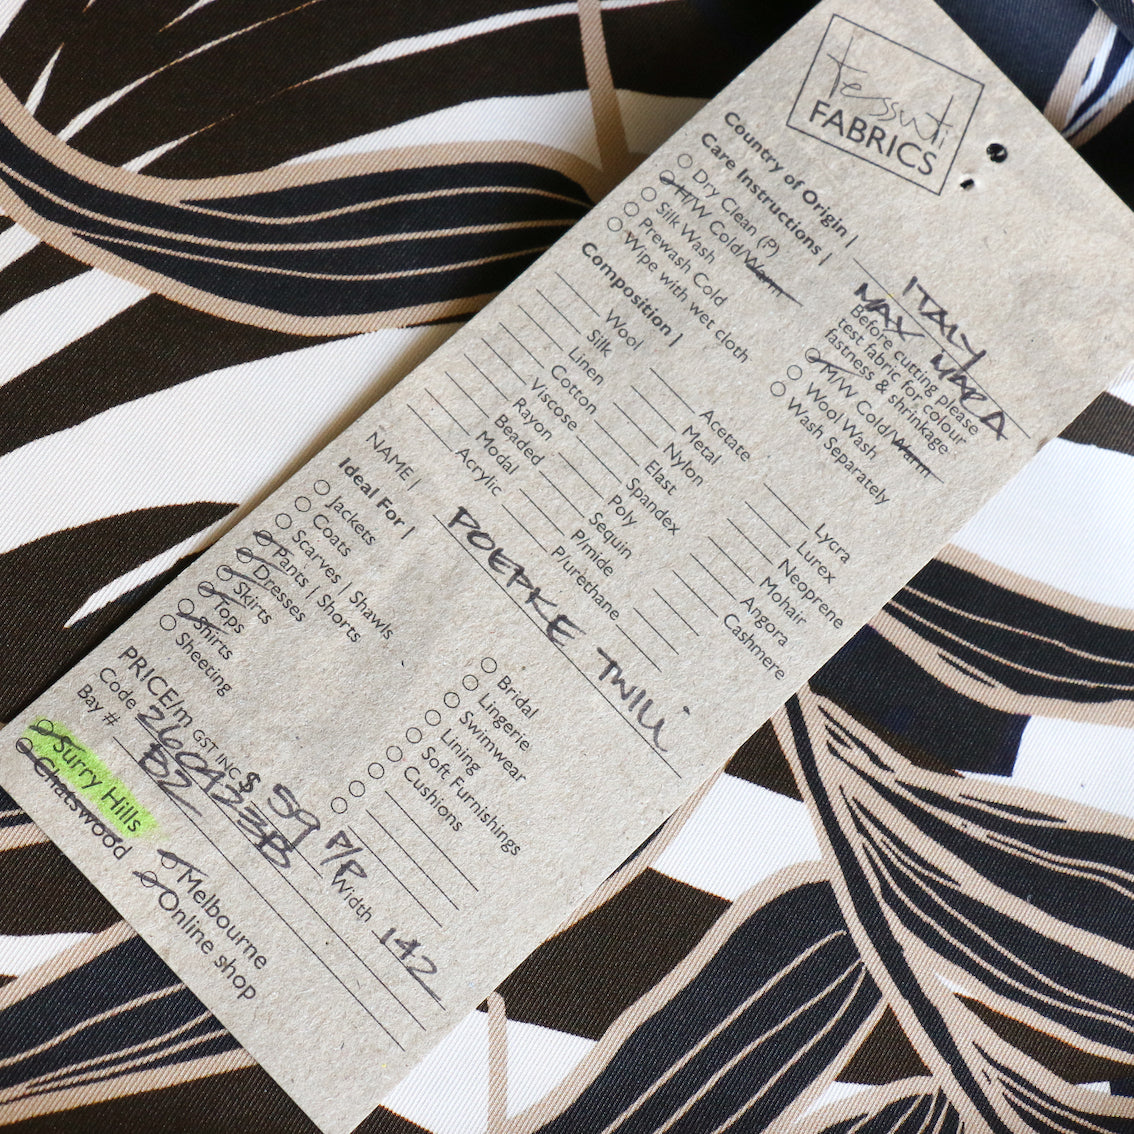 tessuti
FABRICS
Country of Origin | ITALY
Care Instructions | MAX MARA
Dry Clean (P)
H/W Cold/Warm
Silk Wash
Prewash Cold
Wipe with wet cloth
Before cutting please
test fabric for colour
fastness & shrinkage
M/W Cold/Warm
Wool Wash
Wash Separately
Composition |
Wool
Silk
Linen
Cotton
Viscose
Rayon
Beaded
Modal
Acrylic
Acetate
Metal
Nylon
Elast
Spandex
Poly
Sequin
P/mide
P/urethane
Lycra
Lurex
Neoprene
Mohair
Angora
Cashmere
NAME | POEPKE TWILL
Ideal For |
Jackets
Coats
Scarves | Shawls
Pants | Shorts
Dresses
Skirts
Tops
Shirts
Sheeting
Bridal
Lingerie
Swimwear
Lining
Soft Furnishings
Cushions
PRICE/m GST INC $ 59 P/P Width 142
Code 2604233B
Bay # B2
Surry Hills
Chatswood
Melbourne
Online shop